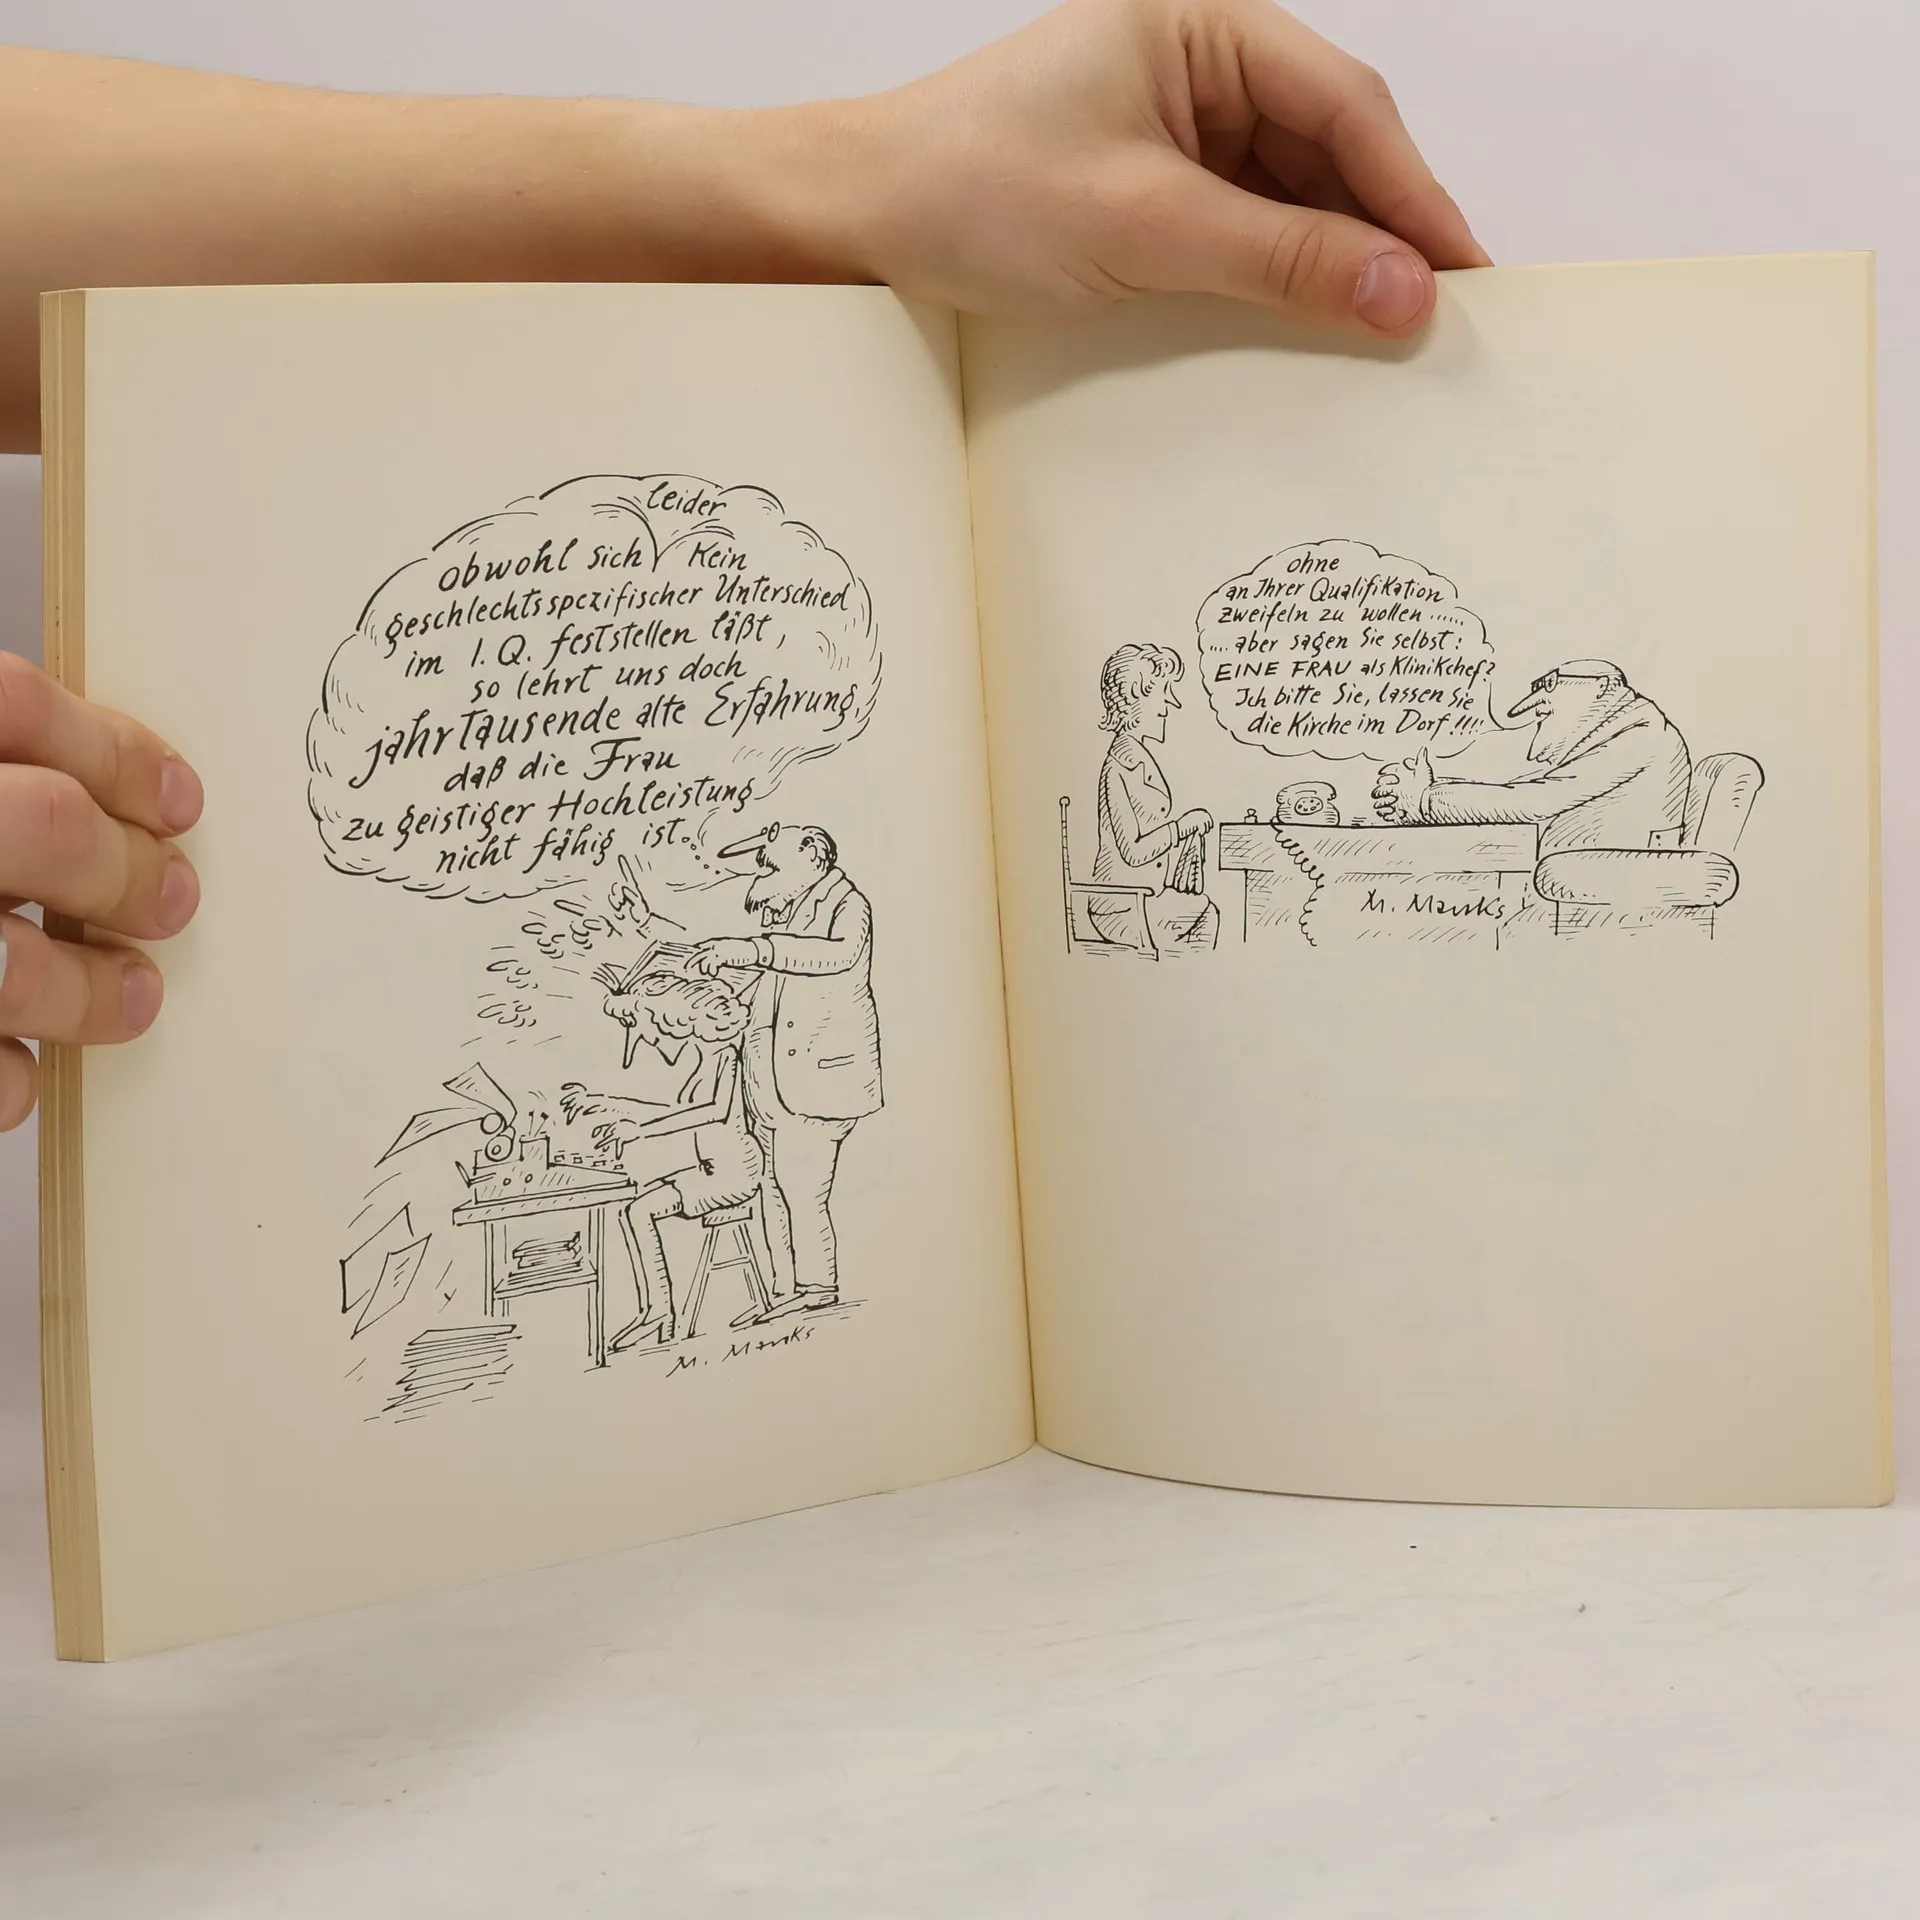 leider
obwohl sich Kein
geschlechtsspezifischer Unterschied
im I.Q. feststellen läßt,
so lehrt uns doch
jahrtausende alte Erfahrung,
daß die Frau
zu geistiger Hochleistung
nicht fähig ist...
M. Marks
ohne
an Ihrer Qualifikation
zweifeln zu wollen ......
.... aber sagen Sie selbst:
EINE FRAU als Klinikchef?
Ich bitte Sie, lassen Sie
die Kirche im Dorf !!!!
M. Marks